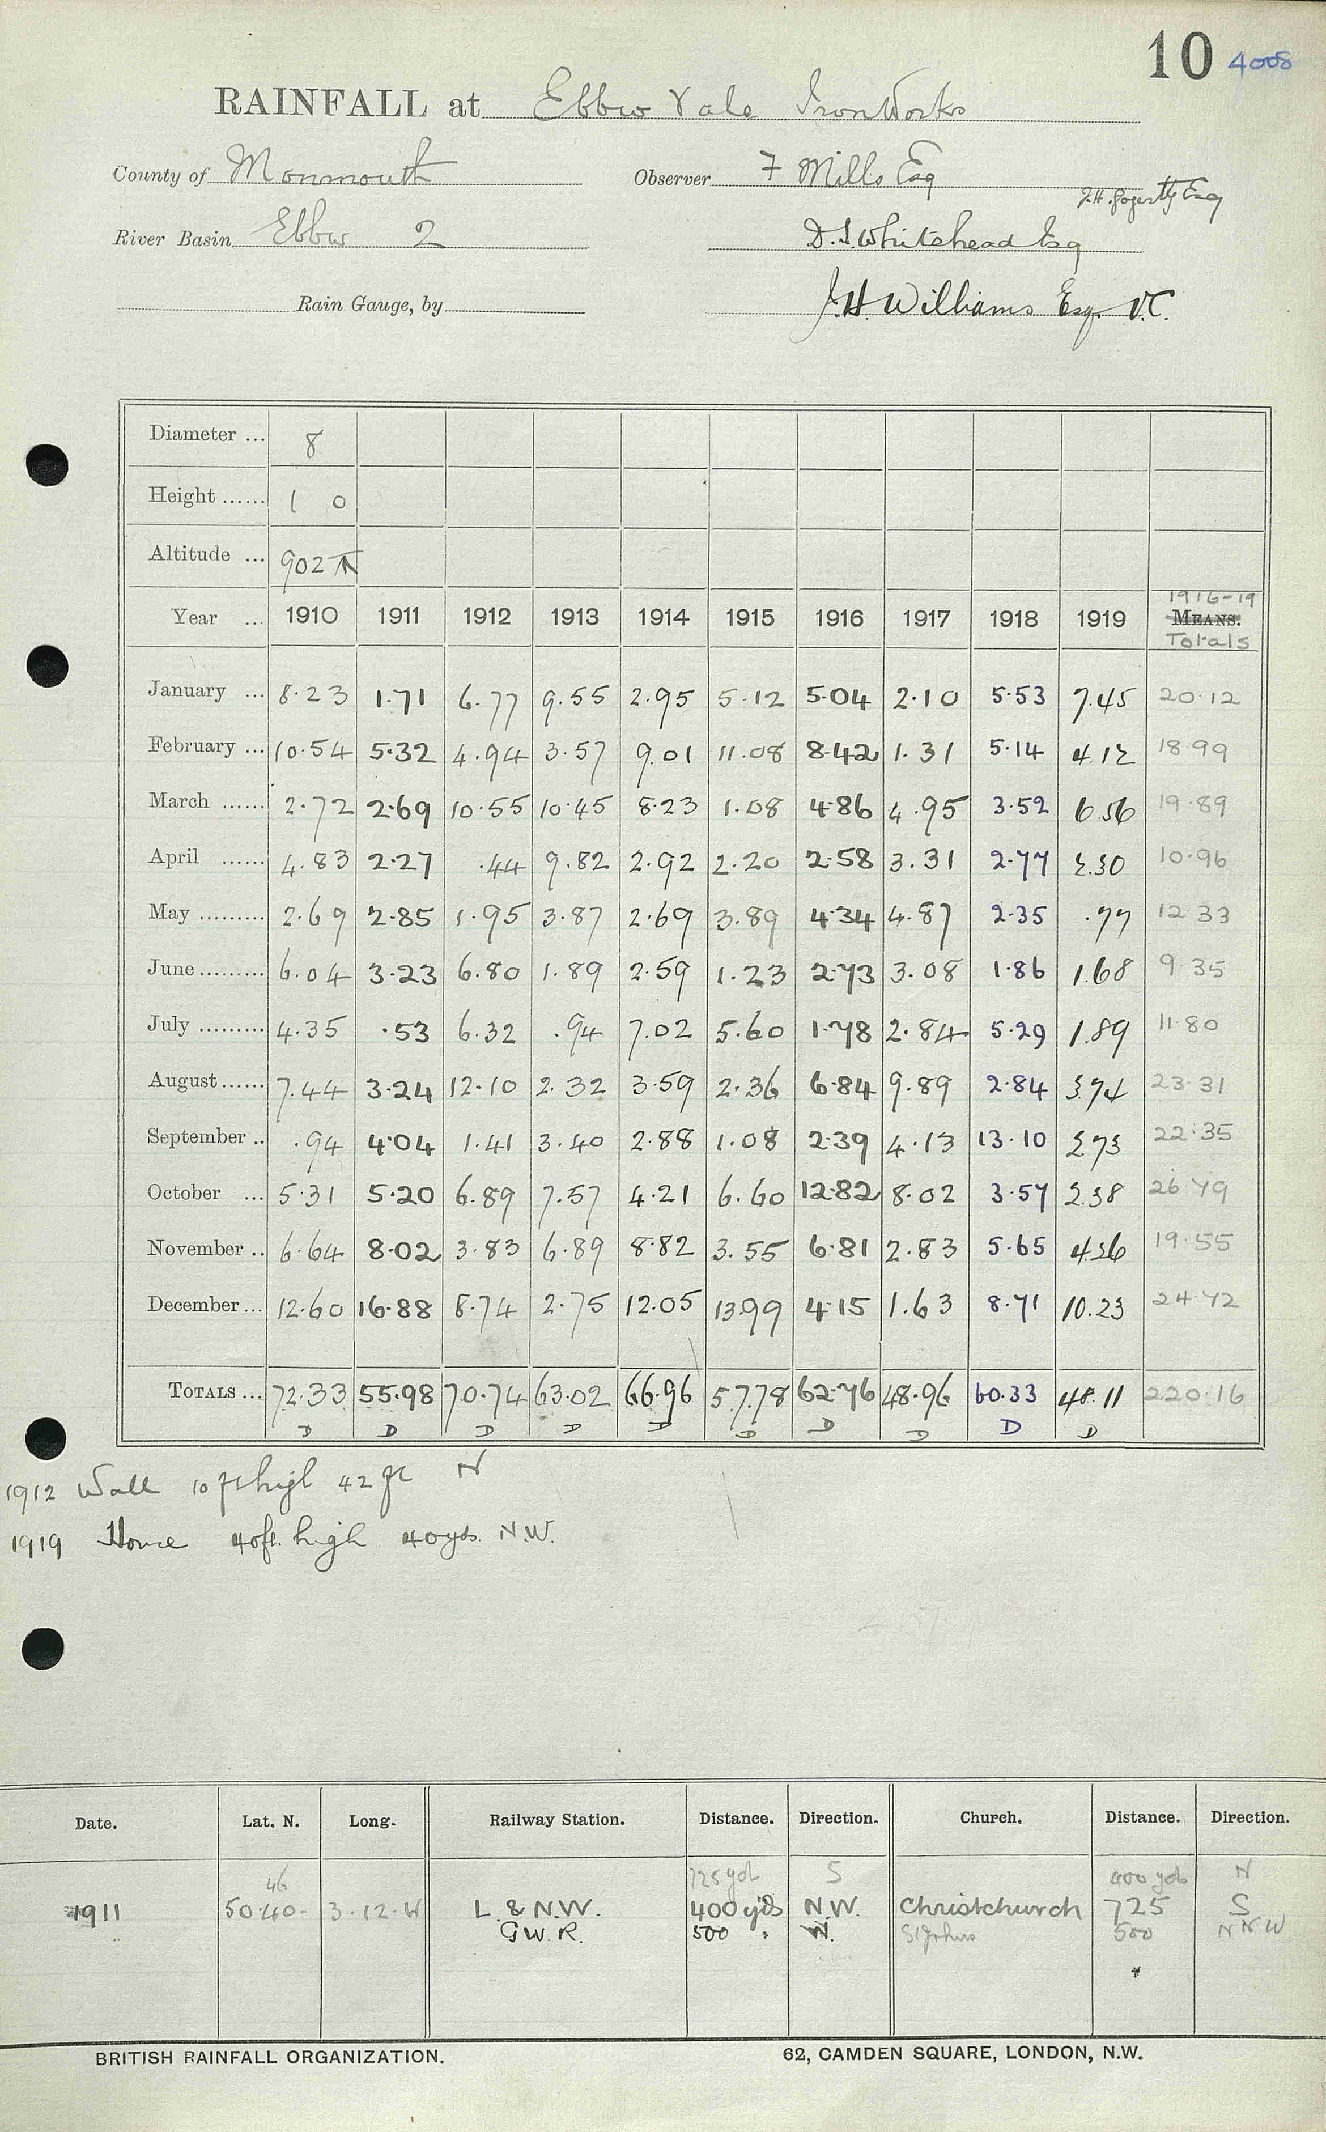 10 4008
RAINFALL at Ebbw Vale IronWorks
County of Monmouth Observer F Mills Esq
J.H. Fogerty Esq
River Basin Ebbw 2 D.S. Whitehead Esq
Rain Gauge, by J.H. Williams Esq. V.C.
Diameter ... 8
Height ...... 1 0
Altitude ... 902 T
1916-19
Year ... 1910 1911 1912 1913 1914 1915 1916 1917 1918 1919 MEANS.
Totals
January ... 8.23 1.71 6.77 9.55 2.95 5.12 5.04 2.10 5.53 7.45 20.12
February ... 10.54 5.32 4.94 3.57 9.01 11.08 8.42 1.31 5.14 4.12 18.99
March ...... 2.72 2.69 10.55 10.45 8.23 1.08 4.86 4.95 3.52 6.56 19.89
April ...... 4.83 2.27 .44 9.82 2.92 2.20 2.58 3.31 2.77 2.30 10.96
May ......... 2.69 2.85 1.95 3.87 2.69 3.89 4.34 4.87 2.35 .77 12.33
June ......... 6.04 3.23 6.80 1.89 2.59 1.23 2.73 3.08 1.86 1.68 9.35
July ......... 4.35 .53 6.32 .94 7.02 5.60 1.78 2.84 5.29 1.89 11.80
August ...... 7.44 3.24 12.10 2.32 3.59 2.36 6.84 9.89 2.84 3.74 23.31
September .. .94 4.04 1.41 3.40 2.88 1.08 2.39 4.13 13.10 2.73 22.35
October ... 5.31 5.20 6.89 7.57 4.21 6.60 12.82 8.02 3.57 2.38 26.79
November .. 6.64 8.02 3.83 6.89 8.82 3.55 6.81 2.83 5.65 4.26 19.55
December ... 12.60 16.88 8.74 2.75 12.05 13.99 4.15 1.63 8.71 10.23 24.72
TOTALS ... 72.33 55.98 70.74 63.02 66.96 57.78 62.76 48.96 60.33 48.11 220.16
D D D D D D D D D D
1912 Wall 10 ft high 42 ft N
1919 House 40ft. high 40yds. N.W.
Date. Lat. N. Long. Railway Station. Distance. Direction. Church. Distance. Direction.
46 725 yds S 400 yds N
1911 50.40. 3.12.W L & N.W. 400 yds N.W. Christchurch 725 S
G.W.R. 500 " N. St Johns 500 N N W
BRITISH RAINFALL ORGANIZATION. 62, CAMDEN SQUARE, LONDON, N.W.